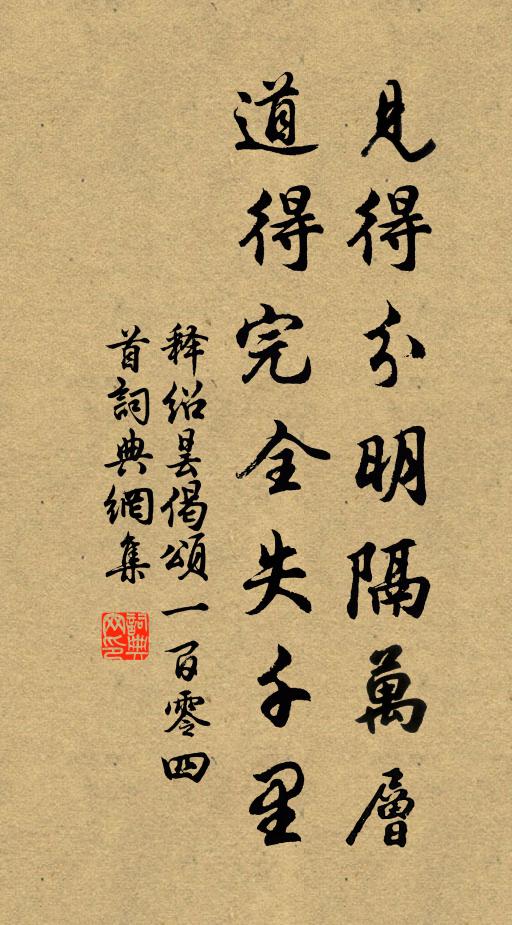 見得分明隔萬層
道得完全失千里
释绍昙偈頌一百零四
首詞典網集
詞典網印